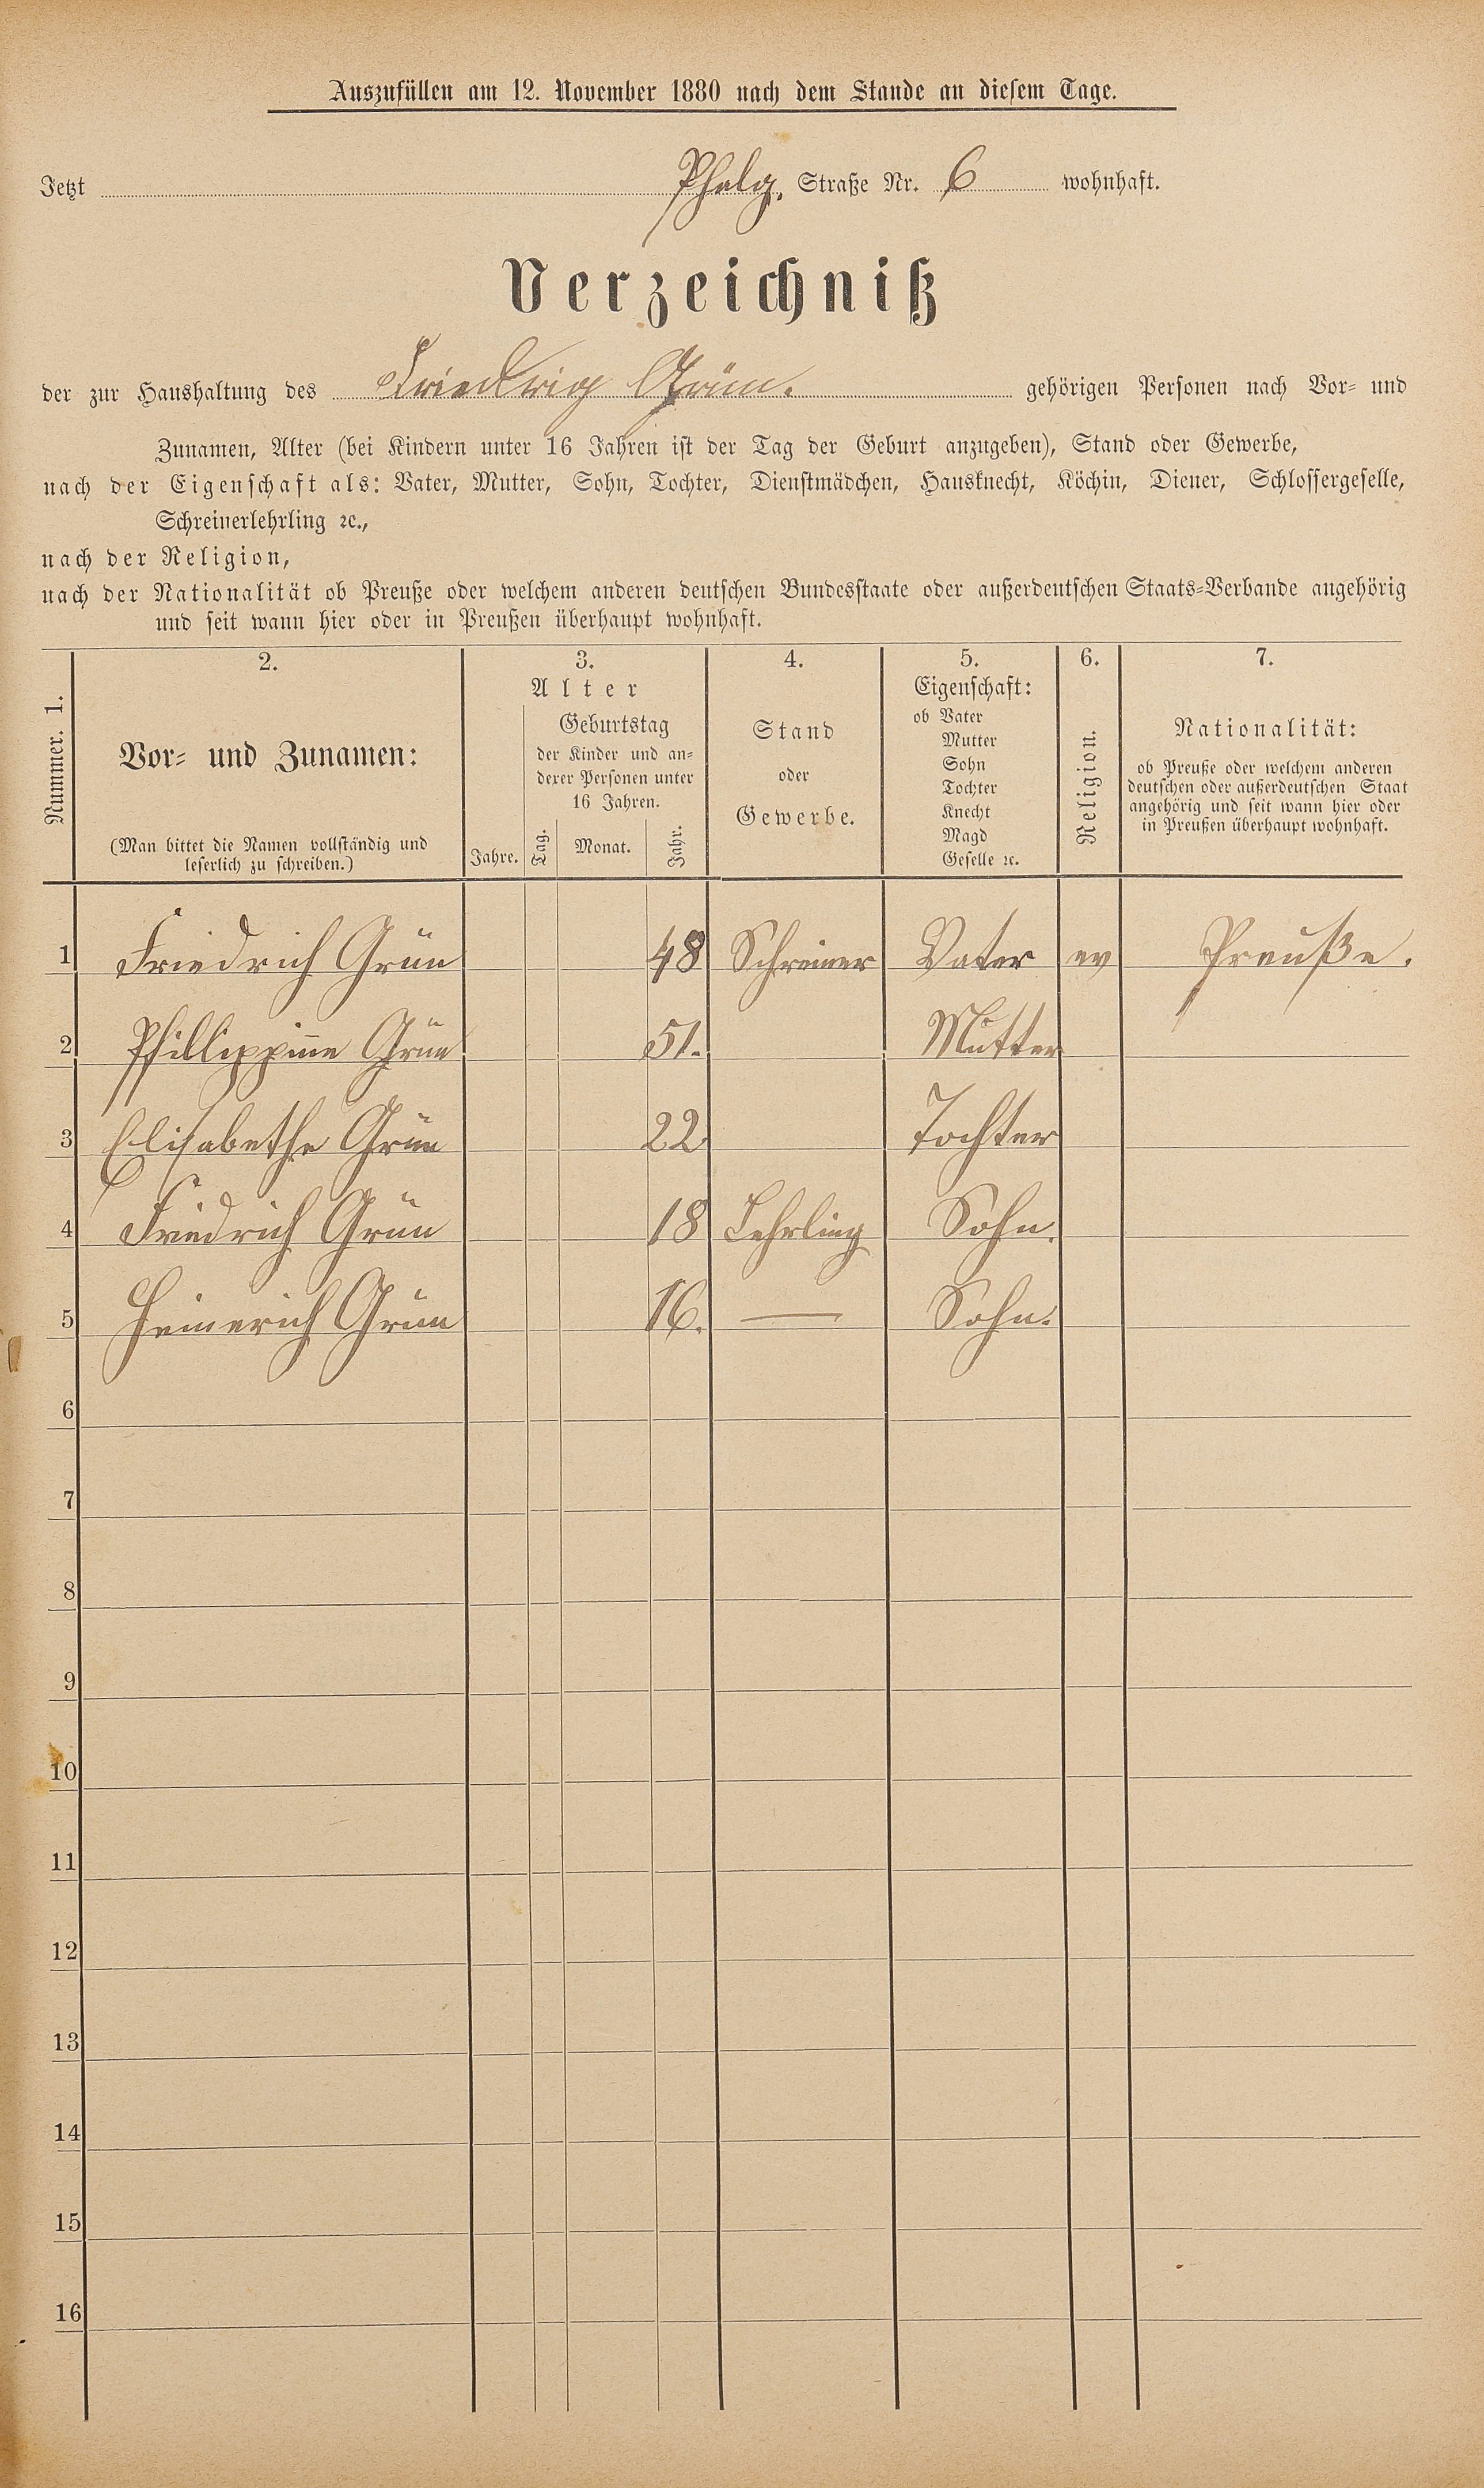 Auszufüllen am 12. November 1880 nach dem Stande an diesem Tage.
Jetzt Straße Nr. 6 wohnhaft.
Verzeichniß
der zur Haushaltung des Friedrig Grün. gehörigen Personen nach Vor- und
Zunamen, Alter (bei Kindern unter 16 Jahren ist der Tag der Geburt anzugeben), Stand oder Gewerbe,
nach der Eigenschaft als: Vater, Mutter, Sohn, Tochter, Dienstmädchen, Hausknecht, Köchin, Diener, Schlossergeselle,
Schreinerlehrling ꝛc.,
nach der Religion,
nach der Nationalität ob Preuße oder welchem anderen deutschen Bundesstaate oder außerdeutschen Staats-Verbande angehörig
und seit wann hier oder in Preußen überhaupt wohnhaft.
Nummer. 1.
2.
Vor- und Zunamen:
(Man bittet die Namen vollständig und
leserlich zu schreiben.)
3.
Alter
Jahre.
Geburtstag
der Kinder und an-
derer Personen unter
16 Jahren.
Tag. Monat. Jahr.
4.
Stand
oder
Gewerbe.
5.
Eigenschaft:
ob Vater
Mutter
Sohn
Tochter
Knecht
Magd
Geselle ꝛc.
6.
Religion.
7.
Nationalität:
ob Preuße oder welchem anderen
deutschen oder außerdeutschen Staat
angehörig und seit wann hier oder
in Preußen überhaupt wohnhaft.
1 Friedrich Grün 48 Schreiner Vater ev Preuße.
2 Phillippine Grün 51. Mutter
3 Elisabethe Grün 22 Tochter
4 Friedrich Grün 18 Lehrling Sohn.
5 Heinerich Grün 16. — Sohn.
6
7
8
9
10
11
12
13
14
15
16